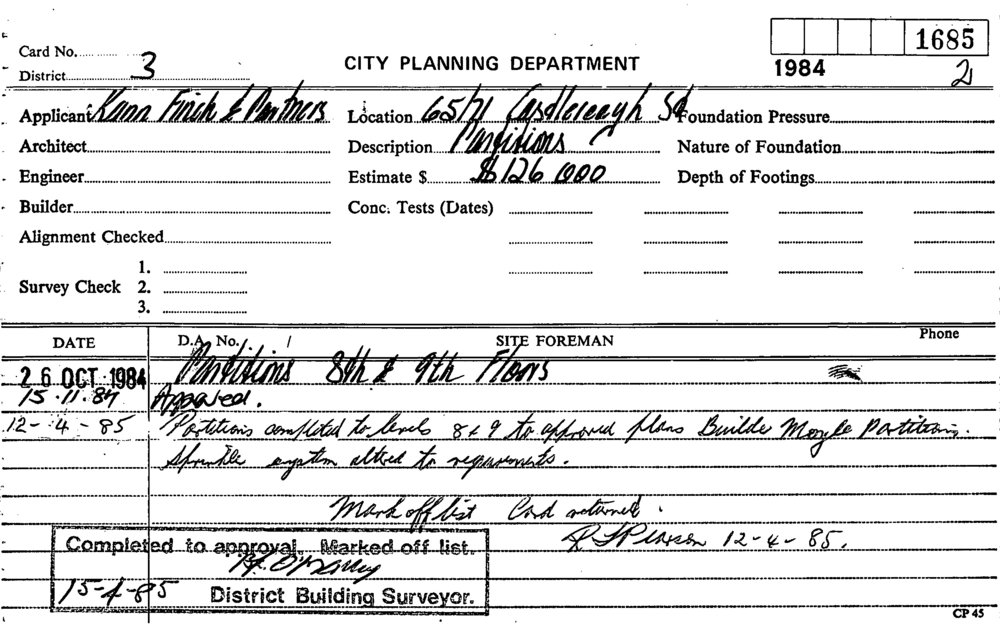 1685
Card No.
3
CITY PLANNING DEPARTMENT
1984
2
District
Applicant Kann Finch & Partners Location 65/71 Castlereagh St Foundation Pressure
Architect Description Partitions Nature of Foundation
Engineer Estimate $ $126 000 Depth of Footings
Builder Conc. Tests (Dates)
Alignment Checked
1.
Survey Check 2.
3.
DATE D.A. No. / SITE FOREMAN Phone
26 OCT 1984 Partitions 8th & 9th Floors
15.11.84 Approved.
12-4-85 Partitions completed to levels 8 & 9 to approved plans Builder Moyle Partitions.
Sprinkler system altered to requirements.
Mark off list Card returned.
R J Pearson 12-4-85.
Completed to approval. Marked off list.
15-4-85 District Building Surveyor.
CP 45